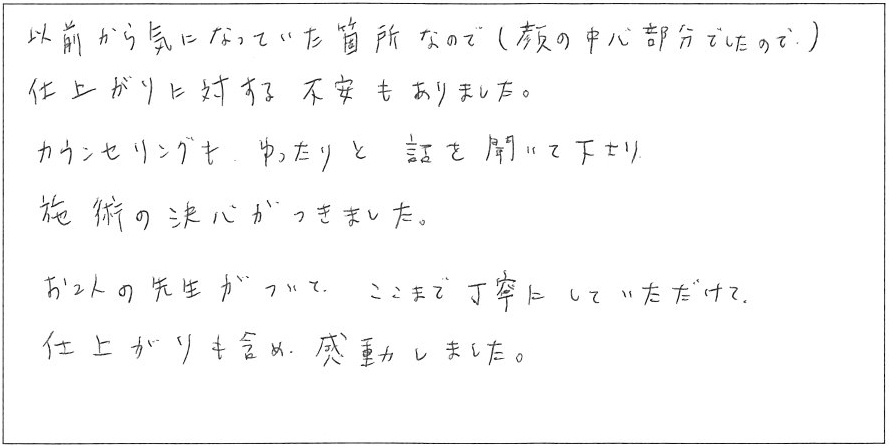 以前から気になっていた箇所なので(顔の中心部分でしたので、)
仕上がりに対する不安もありました。
カウンセリングも、ゆったりと話を聞いて下さり、
施術の決心がつきました。
お2人の先生がついて、ここまで丁寧にしていただけて、
仕上がりも含め、感動しました。